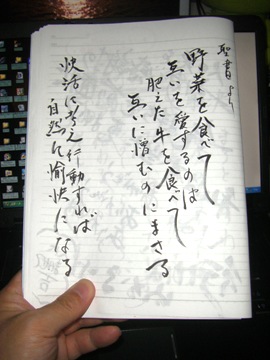 聖書より
野菜を食べて
互いを愛するのは
肥えた牛を食べて
互いに憎むのにまさる
快活に考え行動すれば
自然に愉快になる